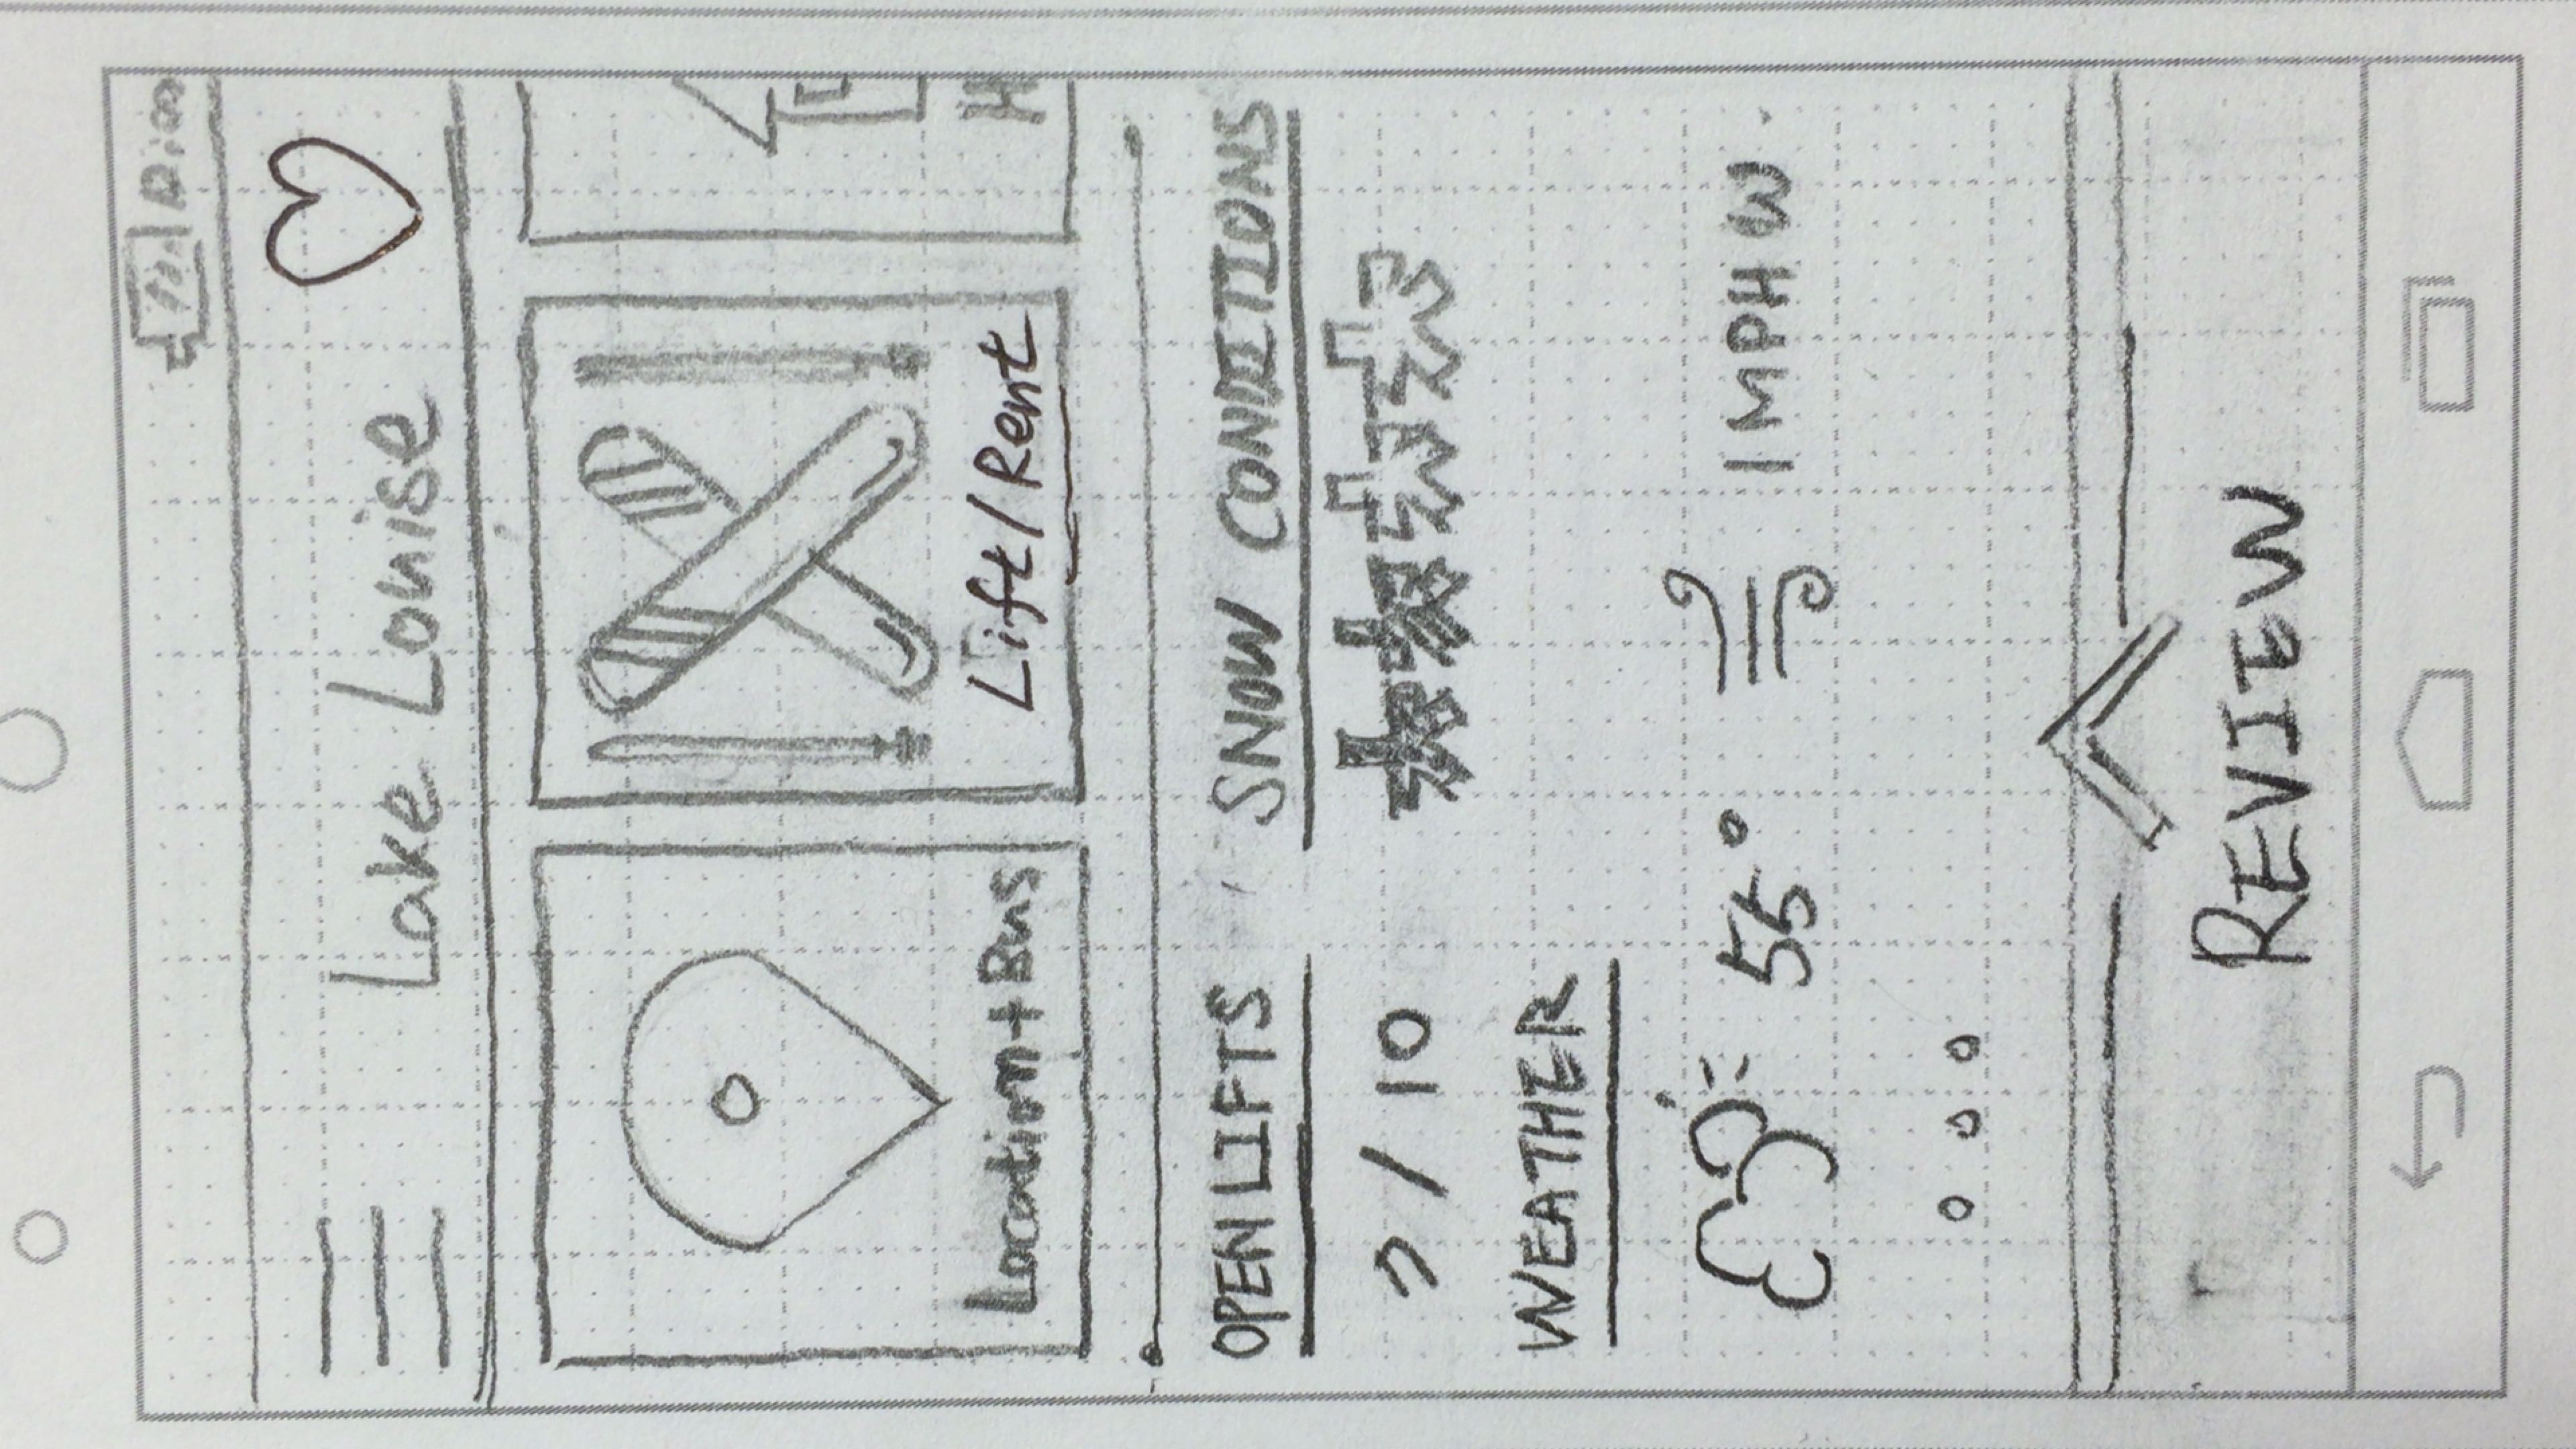 Lake Louise
Location+Bus
Lift/Rent
H
OPEN LIFTS
SNOW CONDITIONS
/ 10
WEATHER
55°
1 MPH W
REVIEW